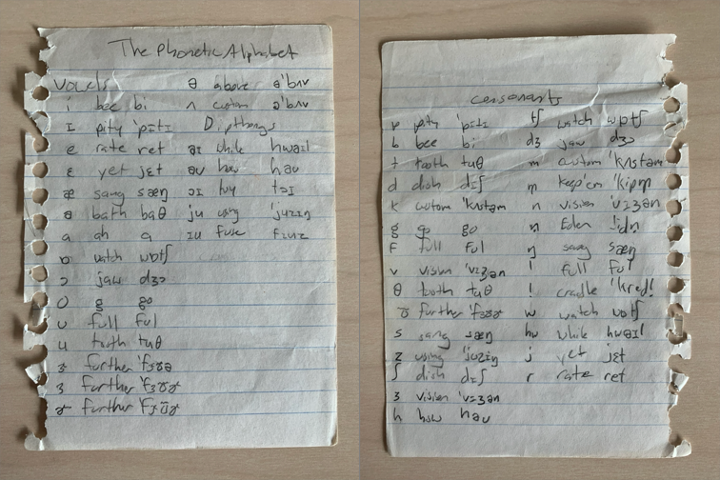 The Phonetic Alphabet
Vowels ə above ə'bʌv
i bee bi ʌ custom ə'bʌv
ɪ pity 'pɪtɪ Dipthongs
e rate ret aɪ while hwaɪl
ɛ yet jɛt aʊ how haʊ
æ sang sæŋ ɔɪ toy tɔɪ
bath baθ ju using 'juzɪŋ
a ah a ɪu fuse fɪuz
ɒ watch wɒtʃ
ɔ jaw dʒɔ
o go
ʊ full fʊl
u tooth tuθ
ɜ further
ɜ further
ɚ further
consonants
p pity 'pɪtɪ tʃ watch wɒtʃ
b bee bi dʒ jaw dʒɔ
t tooth tuθ m custom 'kʌstəm
d dish dɪʃ m̩ keep'em 'kipm̩
k custom 'kʌstəm n vision 'vɪʒən
g go go n̩ Eden 'idn̩
f full fʊl ŋ sang sæŋ
v vision 'vɪʒən l full fʊl
θ tooth tuθ l̩ cradle 'kredl̩
ð further w watch wɒtʃ
s sang sæŋ hw while hwaɪl
z using 'juzɪŋ j yet jɛt
ʃ dish dɪʃ r rate ret
ʒ vision 'vɪʒən
h how haʊ